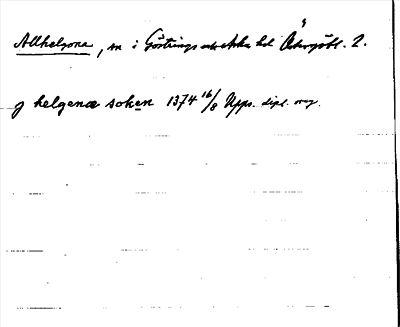 Allhelgona, sn i Göstrings och Aska hd Östergötl. 2.
j helgenæ soken 1374 16/8 Upps. dipl. orig.